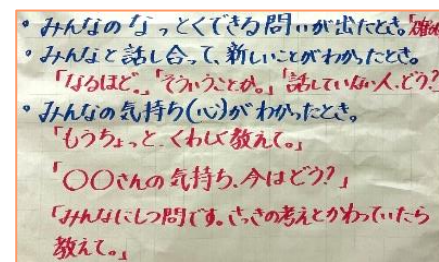 ・みんなのなっとくできる問いが出たとき。「確か
・みんなと話し合って、新しいことがわかったとき。
「なるほど。」「そういうことか。」「話していない人、どう?
・みんなの気持ち(心)がわかったとき。
「もうちょっと、くわしく教えて。」
「〇〇さんの気持ち、今はどう?」
「みんなにしつ問です。さっきの考えとかわっていたら
教えて。」